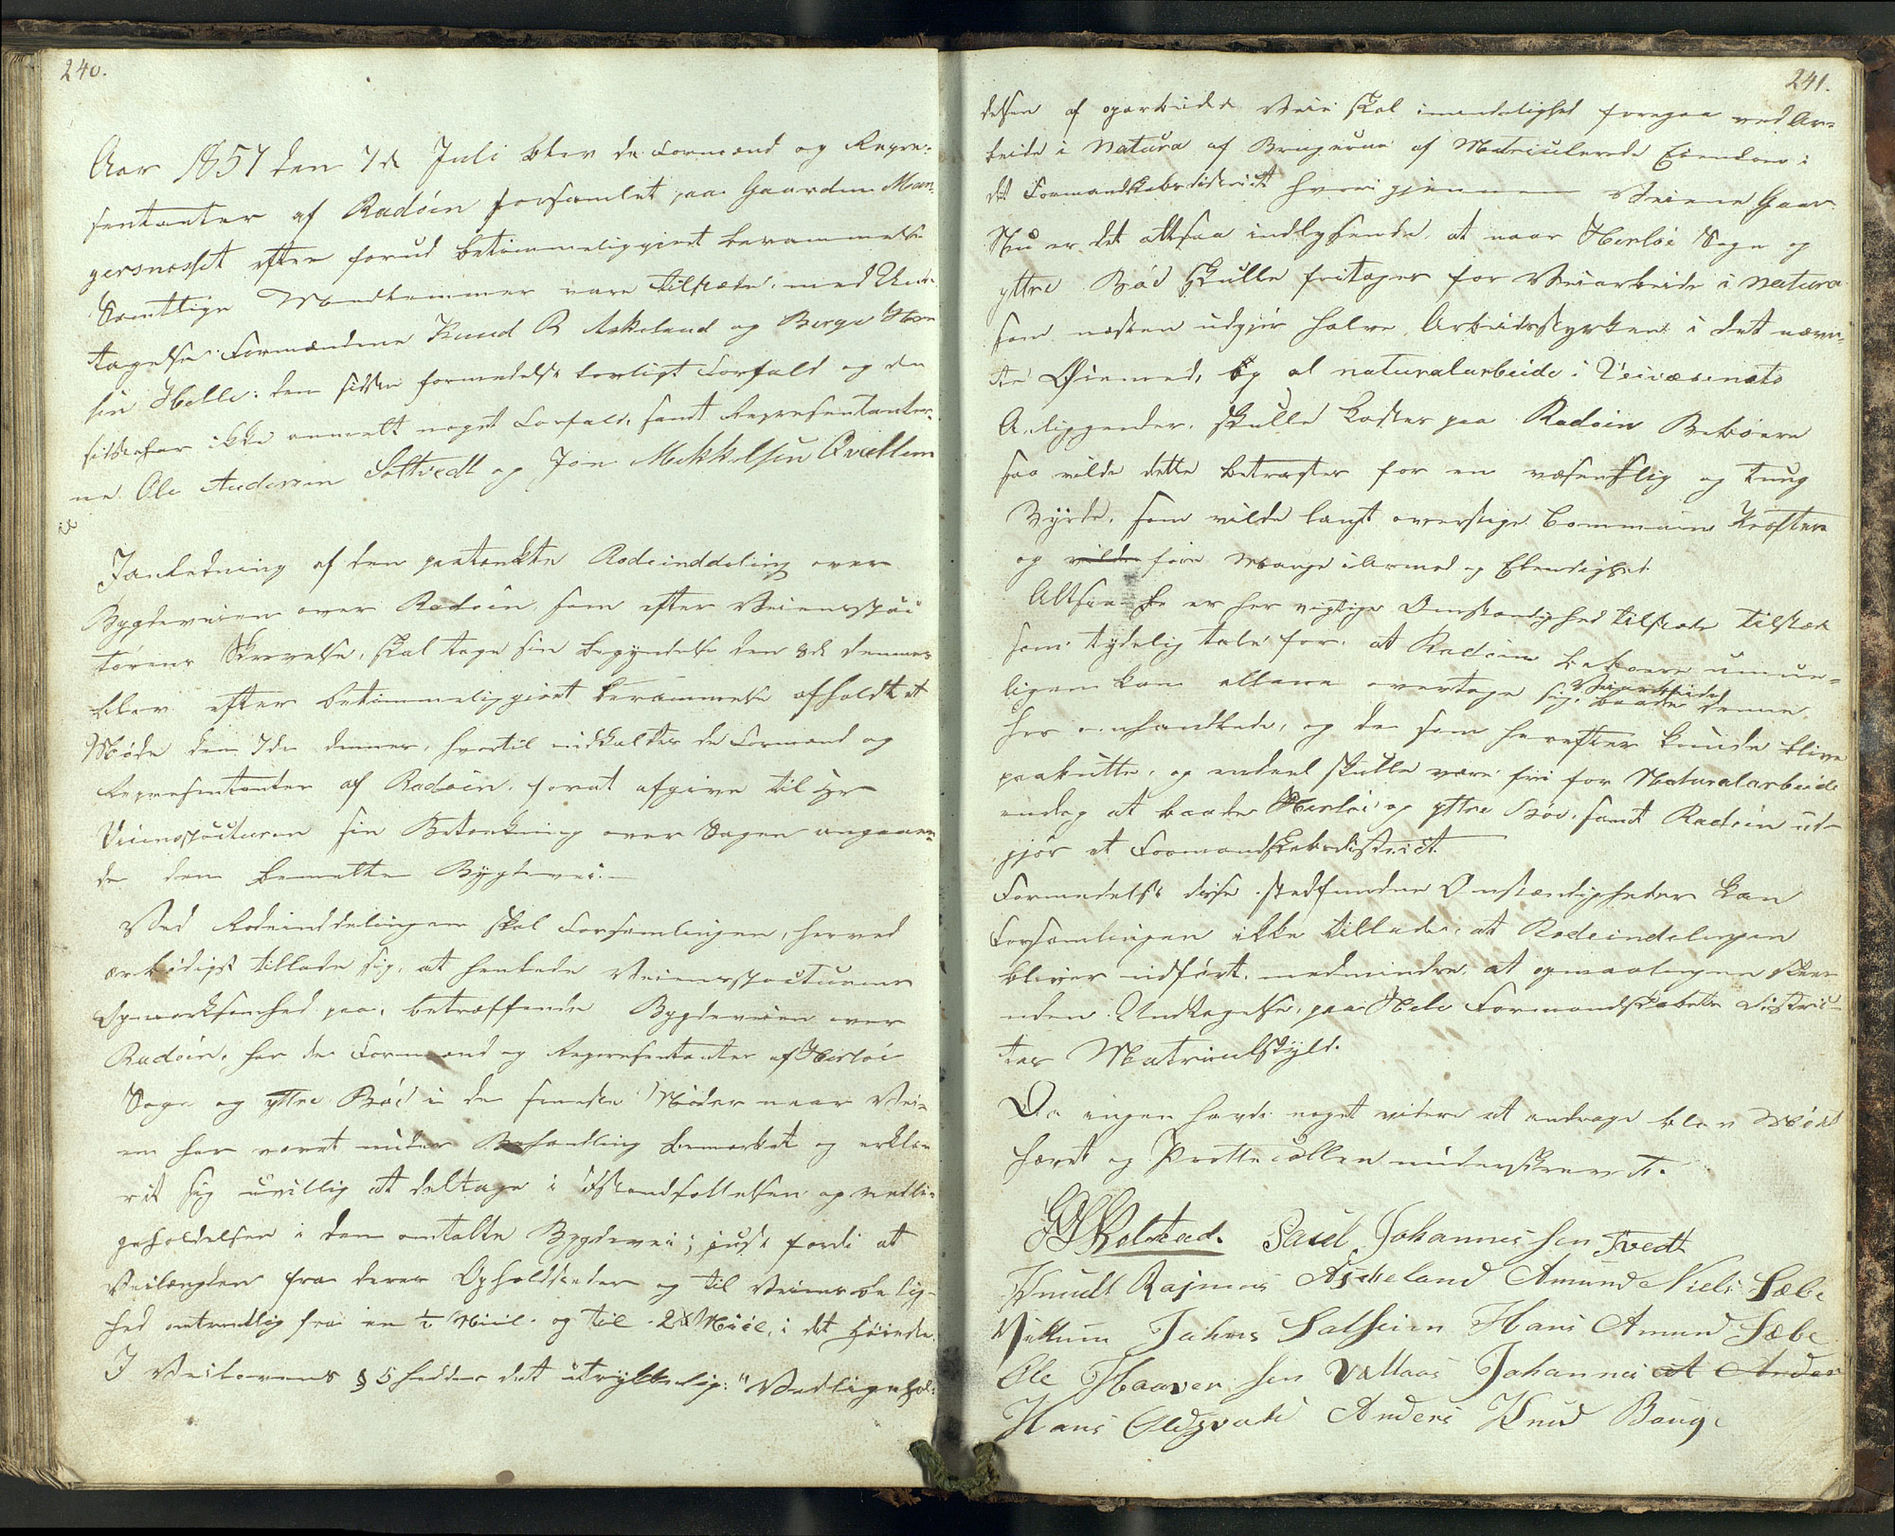 240.
Aar 1857 den 7de Juli blev de Formænd og Repre-
sentanter af Radöen forsamlet paa Gaarden Man-
gersnesset efter forud betimmeliggivet berammelse
Samtlige Medlemmer vare tilstæde, med Und-
tagelse Formændene Knud R Askeland og Børge Han-
sen Helle: den første formedelst lovligt Forfald og den
sidste har ikke anmelt noget Forfald, samt Representanter-
ne Ole Andersen Soltvedt og Jon Mikkelsen Qvidlem
id
I anledning af den paatænkte Rodeinddeling over
Bygdeveien over Radöen, som efter Veiinspec
törens Skrivelse, skal tage sin begyndelse den 8de dennes
blev efter betimmeliggivet berammelse afholdt et
Møde den 7de dennes, hvortil indkaldtes de Formænd og
Representanter af Radöen, forat afgive til Hr
Veiinspecteuren sin Betænkning over Sagen angaaen-
de den bemelte Bygdevei.
Ved Rodeinddelingen skal Forsamlingen, herved
ærbödigst tillade sig, at henlede Veiinspecteurens
Opmærksomhed paa, betræffende Bygdeveien over
Radöen, har de Formænd og Representanter af Herlöe
Sogn og yttre Böe i de fleste Möder naar Vei-
en har været under Behandling bemærket og erklæ-
ret sig uvillig at deltage i Istandsættelsen og vedli-
geholdelsen i den omtalte Bygdevei; just fordi at
Veilængden fra deres Opholdsteder og til Veiens belig-
hed omtrentlig fra en ½ Miil og til 2½ Miil, i det Höieste.
I Veilovens § 5 hedder det udtrykkelig: "Vedligehol-
241.
delsen af oparbeidede Veie skal imidlertid foregaa ved Ar-
beide i Natura af Brugerne af Matriculerede Eiendom i
det Formandskabsdistrict hvorigjennem Veiene gaar.
Nu er det altsaa indlysende, at naar Herlöe Sogn og
yttre Böe skulle fritages for Veiarbeide i Natura
som næsten udgjör halve Arbeidsstyrken i det nævn-
te Øiemed, og al naturalarbeide i Veivæsenets
Anliggender, skulle kostes paa Radöens Beboere
saa vilde dette betragtes for en væsentlig og tung
Byrde, som vilde langt overstige Communens Kræfter
og vilde före mange i Armod og Elendighed.
Altsaa de er her vigtige Omstændighed tilstæde tilstæde
som tydelig taler for, at Radöens beboere umue-
ligen kan allene overtage sig, Veiarbeidet baade denne
her omhandlede, og de som herefter kunde blive
paabudte, og endeel skulle være fri for Naturalarbeide
endog at baade Herlöe og yttre Böe, samt Radöen ud-
gjör et Formandskabsdistrict.
Formedelst disse stedfundne Omstændigheder kan
Forsamlingen ikke tillade, at Rodeindelingen
bliver udfört, medmindre at opmaalingen skeer
uden Undtagelse, paa Hele Formandskabets Distric-
tes Matriculskyld.
Da ingen havde noget videre at andrage blev Mödet
hævet og Protte collen underskrevet.
Skolstad. Saul Johannessen Tvedt
Knudt Rasmus Askeland Amund Niels Sæbe
Villum Johns Halsein Hans Amund Sæbe
Ole Haaversen Vallaas Johannes A Ander
Hans Oldsvold Anders Knud Bouge